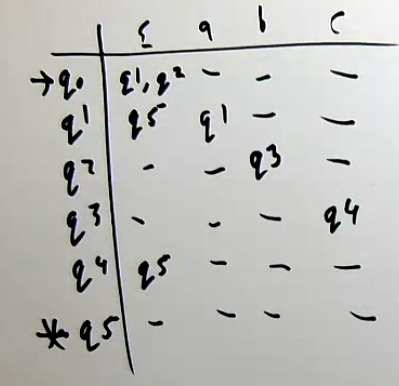 ε a b c
→ q0 q1, q2 - - -
q1 q5 q1 - -
q2 - - q3 -
q3 - - - q4
q4 q5 - - -
* q5 - - - -